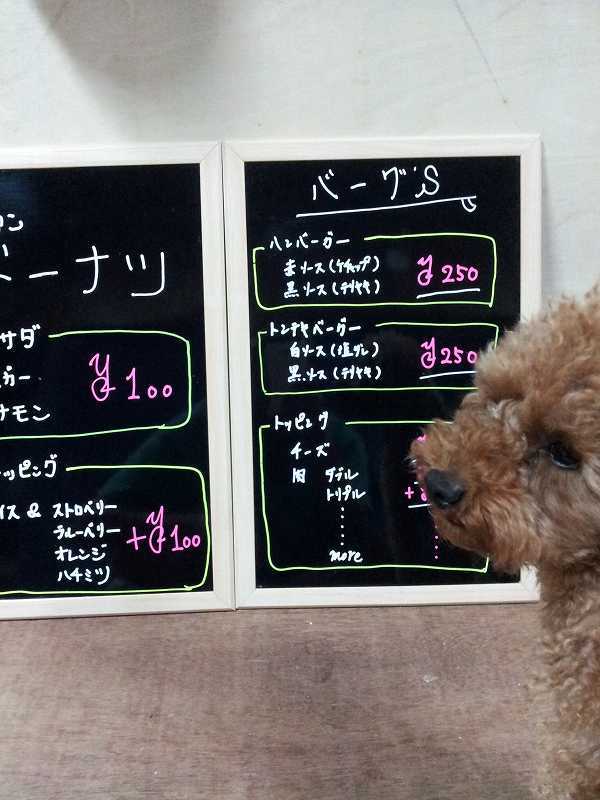 ン
ドーナツ
サダ
ガー
ナモン
¥100
ッピング
イス & ストロベリー
ブルーベリー
オレンジ
ハチミツ
+¥100
バーグ'S
ハンバーガー
赤ソース(ケチャップ)
黒ソース(テリヤキ)
¥250
トンテキバーガー
白ソース(塩ダレ)
黒ソース(テリヤキ)
¥250
トッピング
チーズ
肉 ダブル
トリプル
more